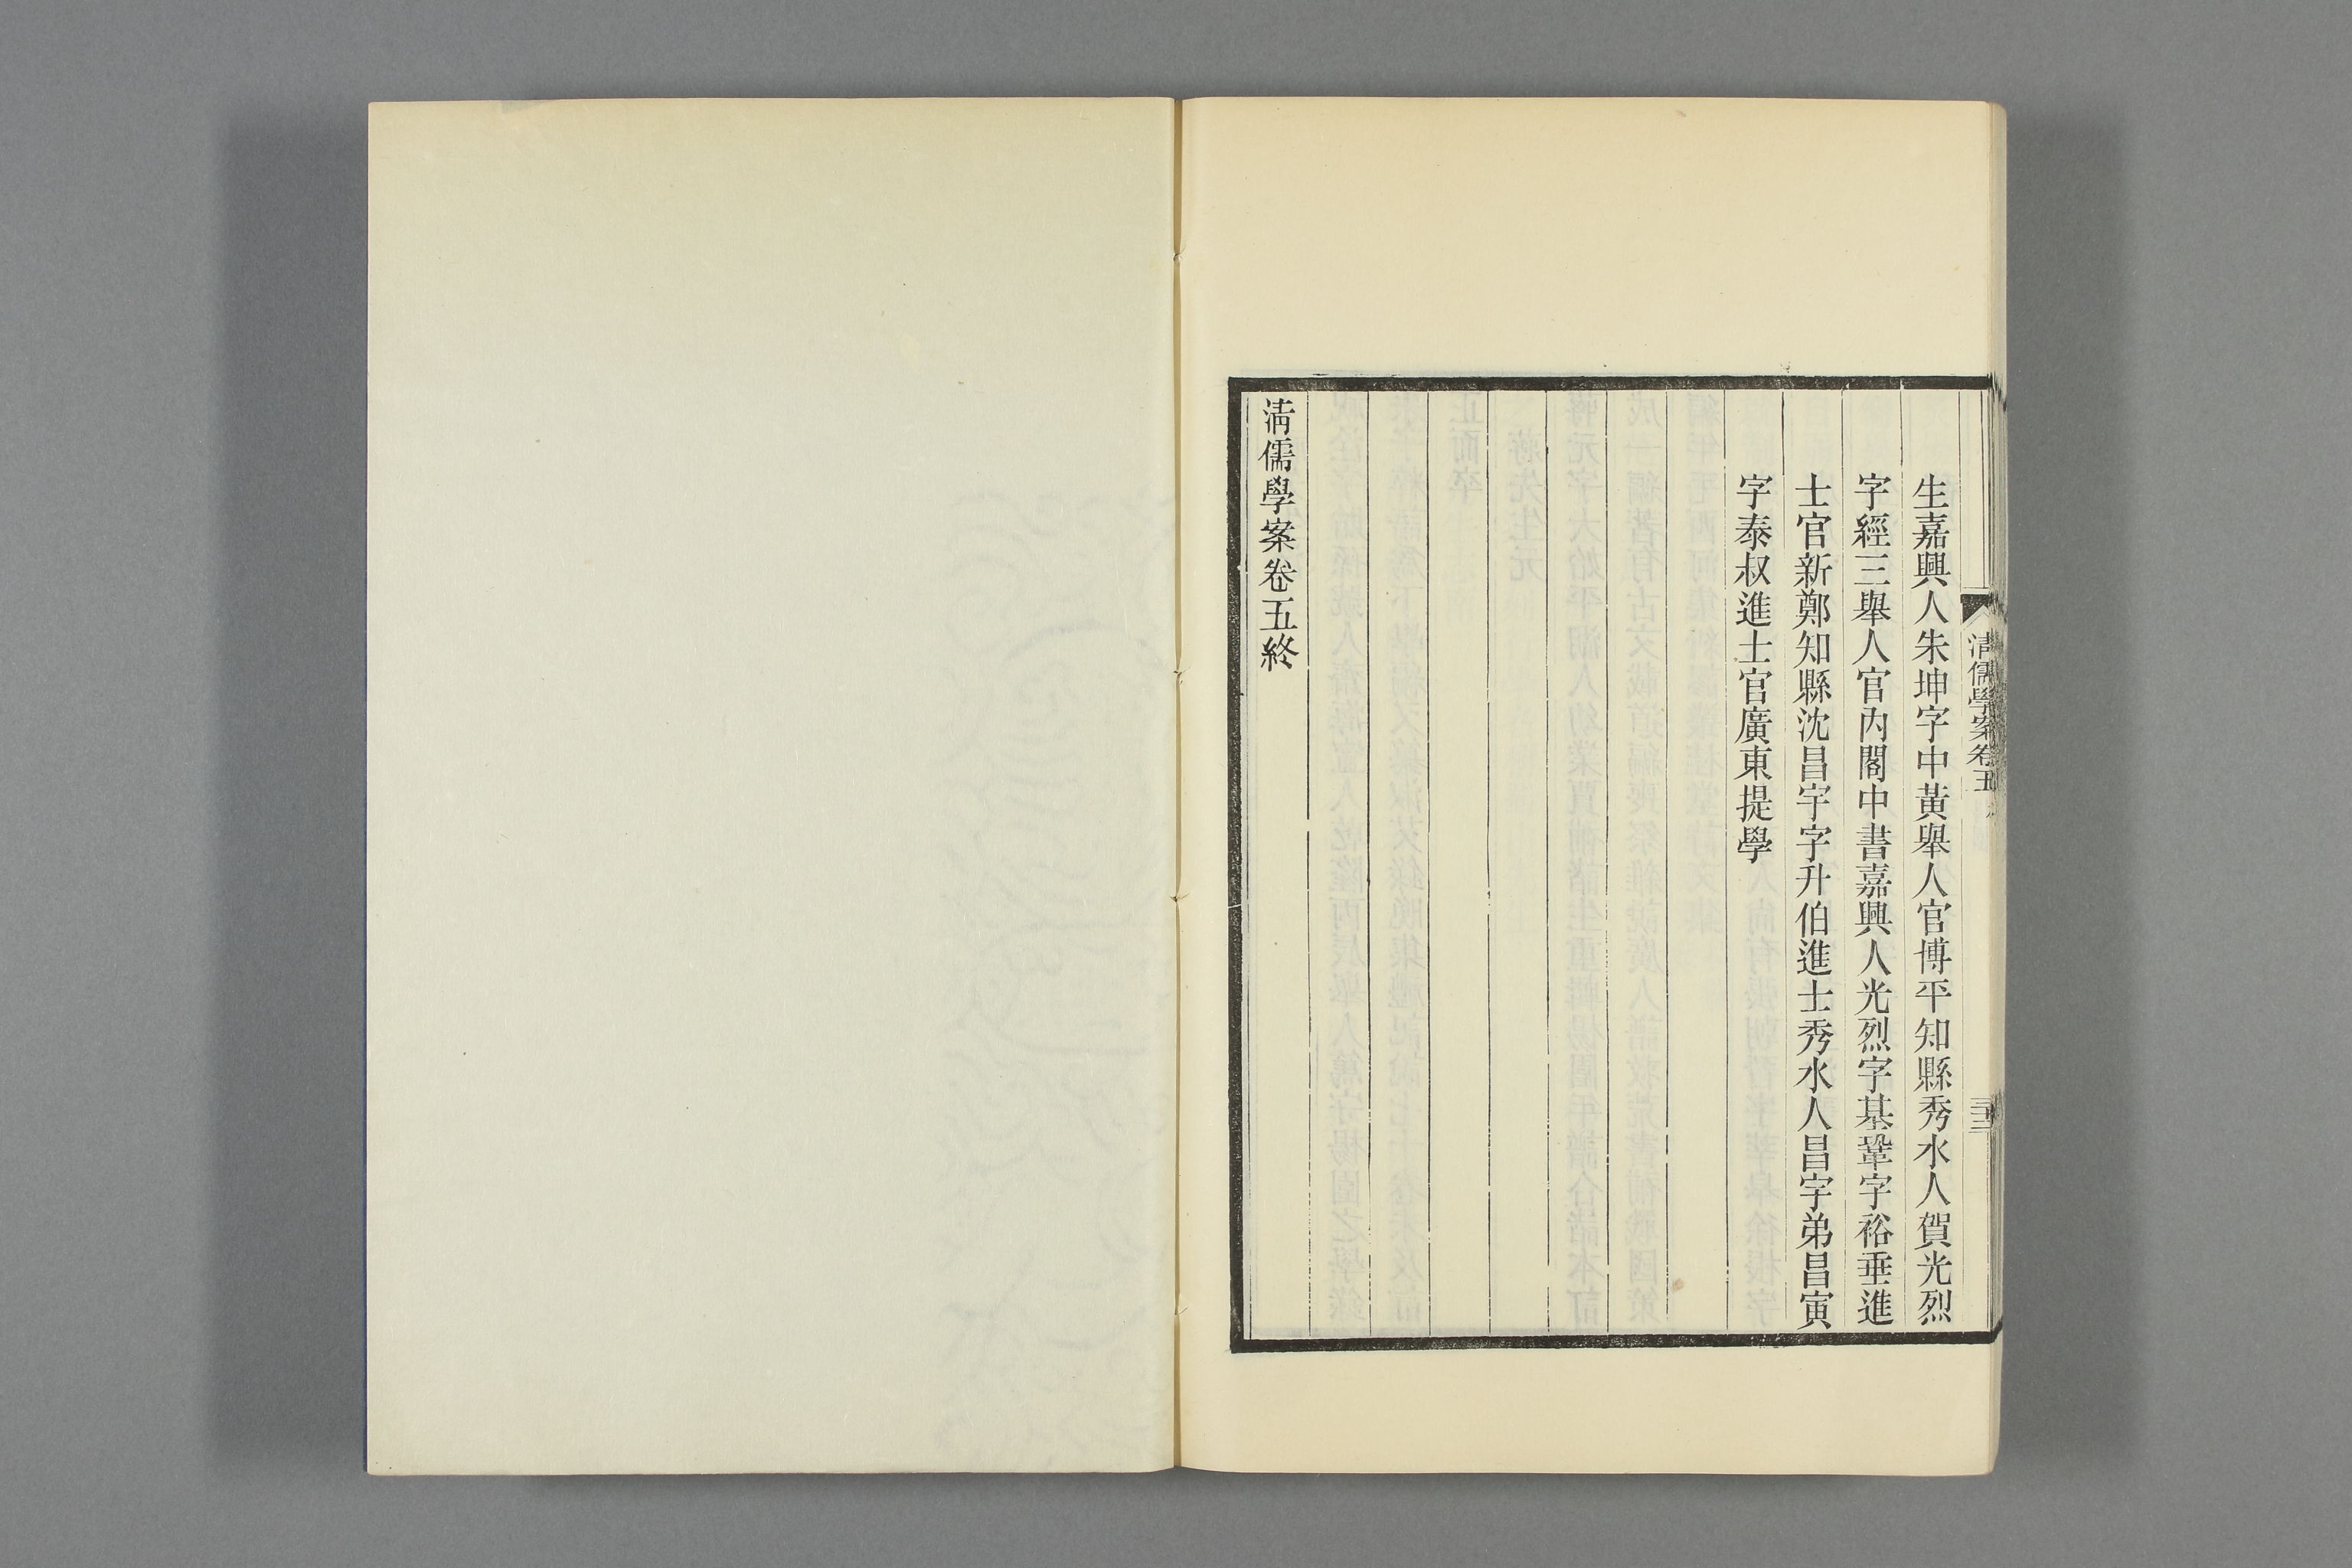 清儒學案卷五
三十三
生嘉興人朱坤字中黃舉人官博平知縣秀水人賀光烈
字經三舉人官內閣中書嘉興人光烈字基鞏字裕垂進
士官新鄭知縣沈昌宇字升伯進士秀水人昌宇弟昌寅
字泰叔進士官廣東提學
清儒學案卷五終